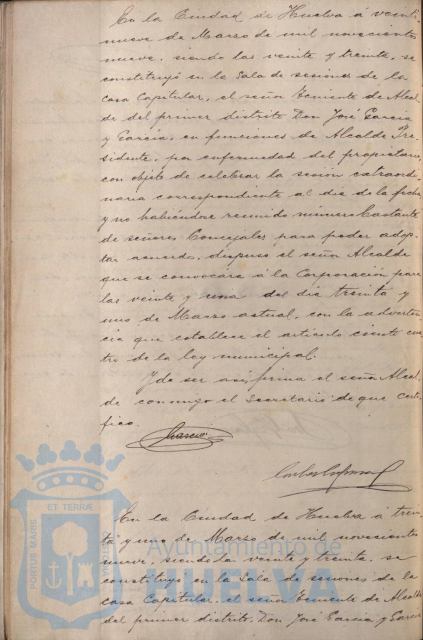 En la Ciudad de Huelva á veinti-
nueve de Marzo de mil novecientos
nueve, siendo las veinte y treinta, se
constituyó en la Sala de sesiones de la
casa Capitular, el señor Teniente de Alcal-
de del primer distrito Don José García
y García, en funciones de Alcalde Pre-
sidente, por enfermedad del propietario,
con objeto de celebrar la sesión extraordi-
naria correspondiente al día de la fecha
y no habiéndose reunido número bastante
de señores Concejales para poder adop-
tar acuerdo, dispuso el señor Alcalde
que se convocára á la Corporación para
las veinte y una del día treinta y
uno de Marzo actual, con la adverten-
cia que establece el artículo ciento cua-
tro de la ley municipal.
Y de ser así, firma el señor Alcal-
de conmigo el Secretario de que certi-
fico.
En la Ciudad de Huelva á trein-
ta y uno de Marzo de mil novecientos
nueve, siendo las veinte y treinta, se
constituyó en la Sala de sesiones de la
casa Capitular, el señor Teniente de Alcalde
del primer distrito, Don José García y García
PORTUS MARIS ET TERRÆ
Ayuntamiento de
HUELVA